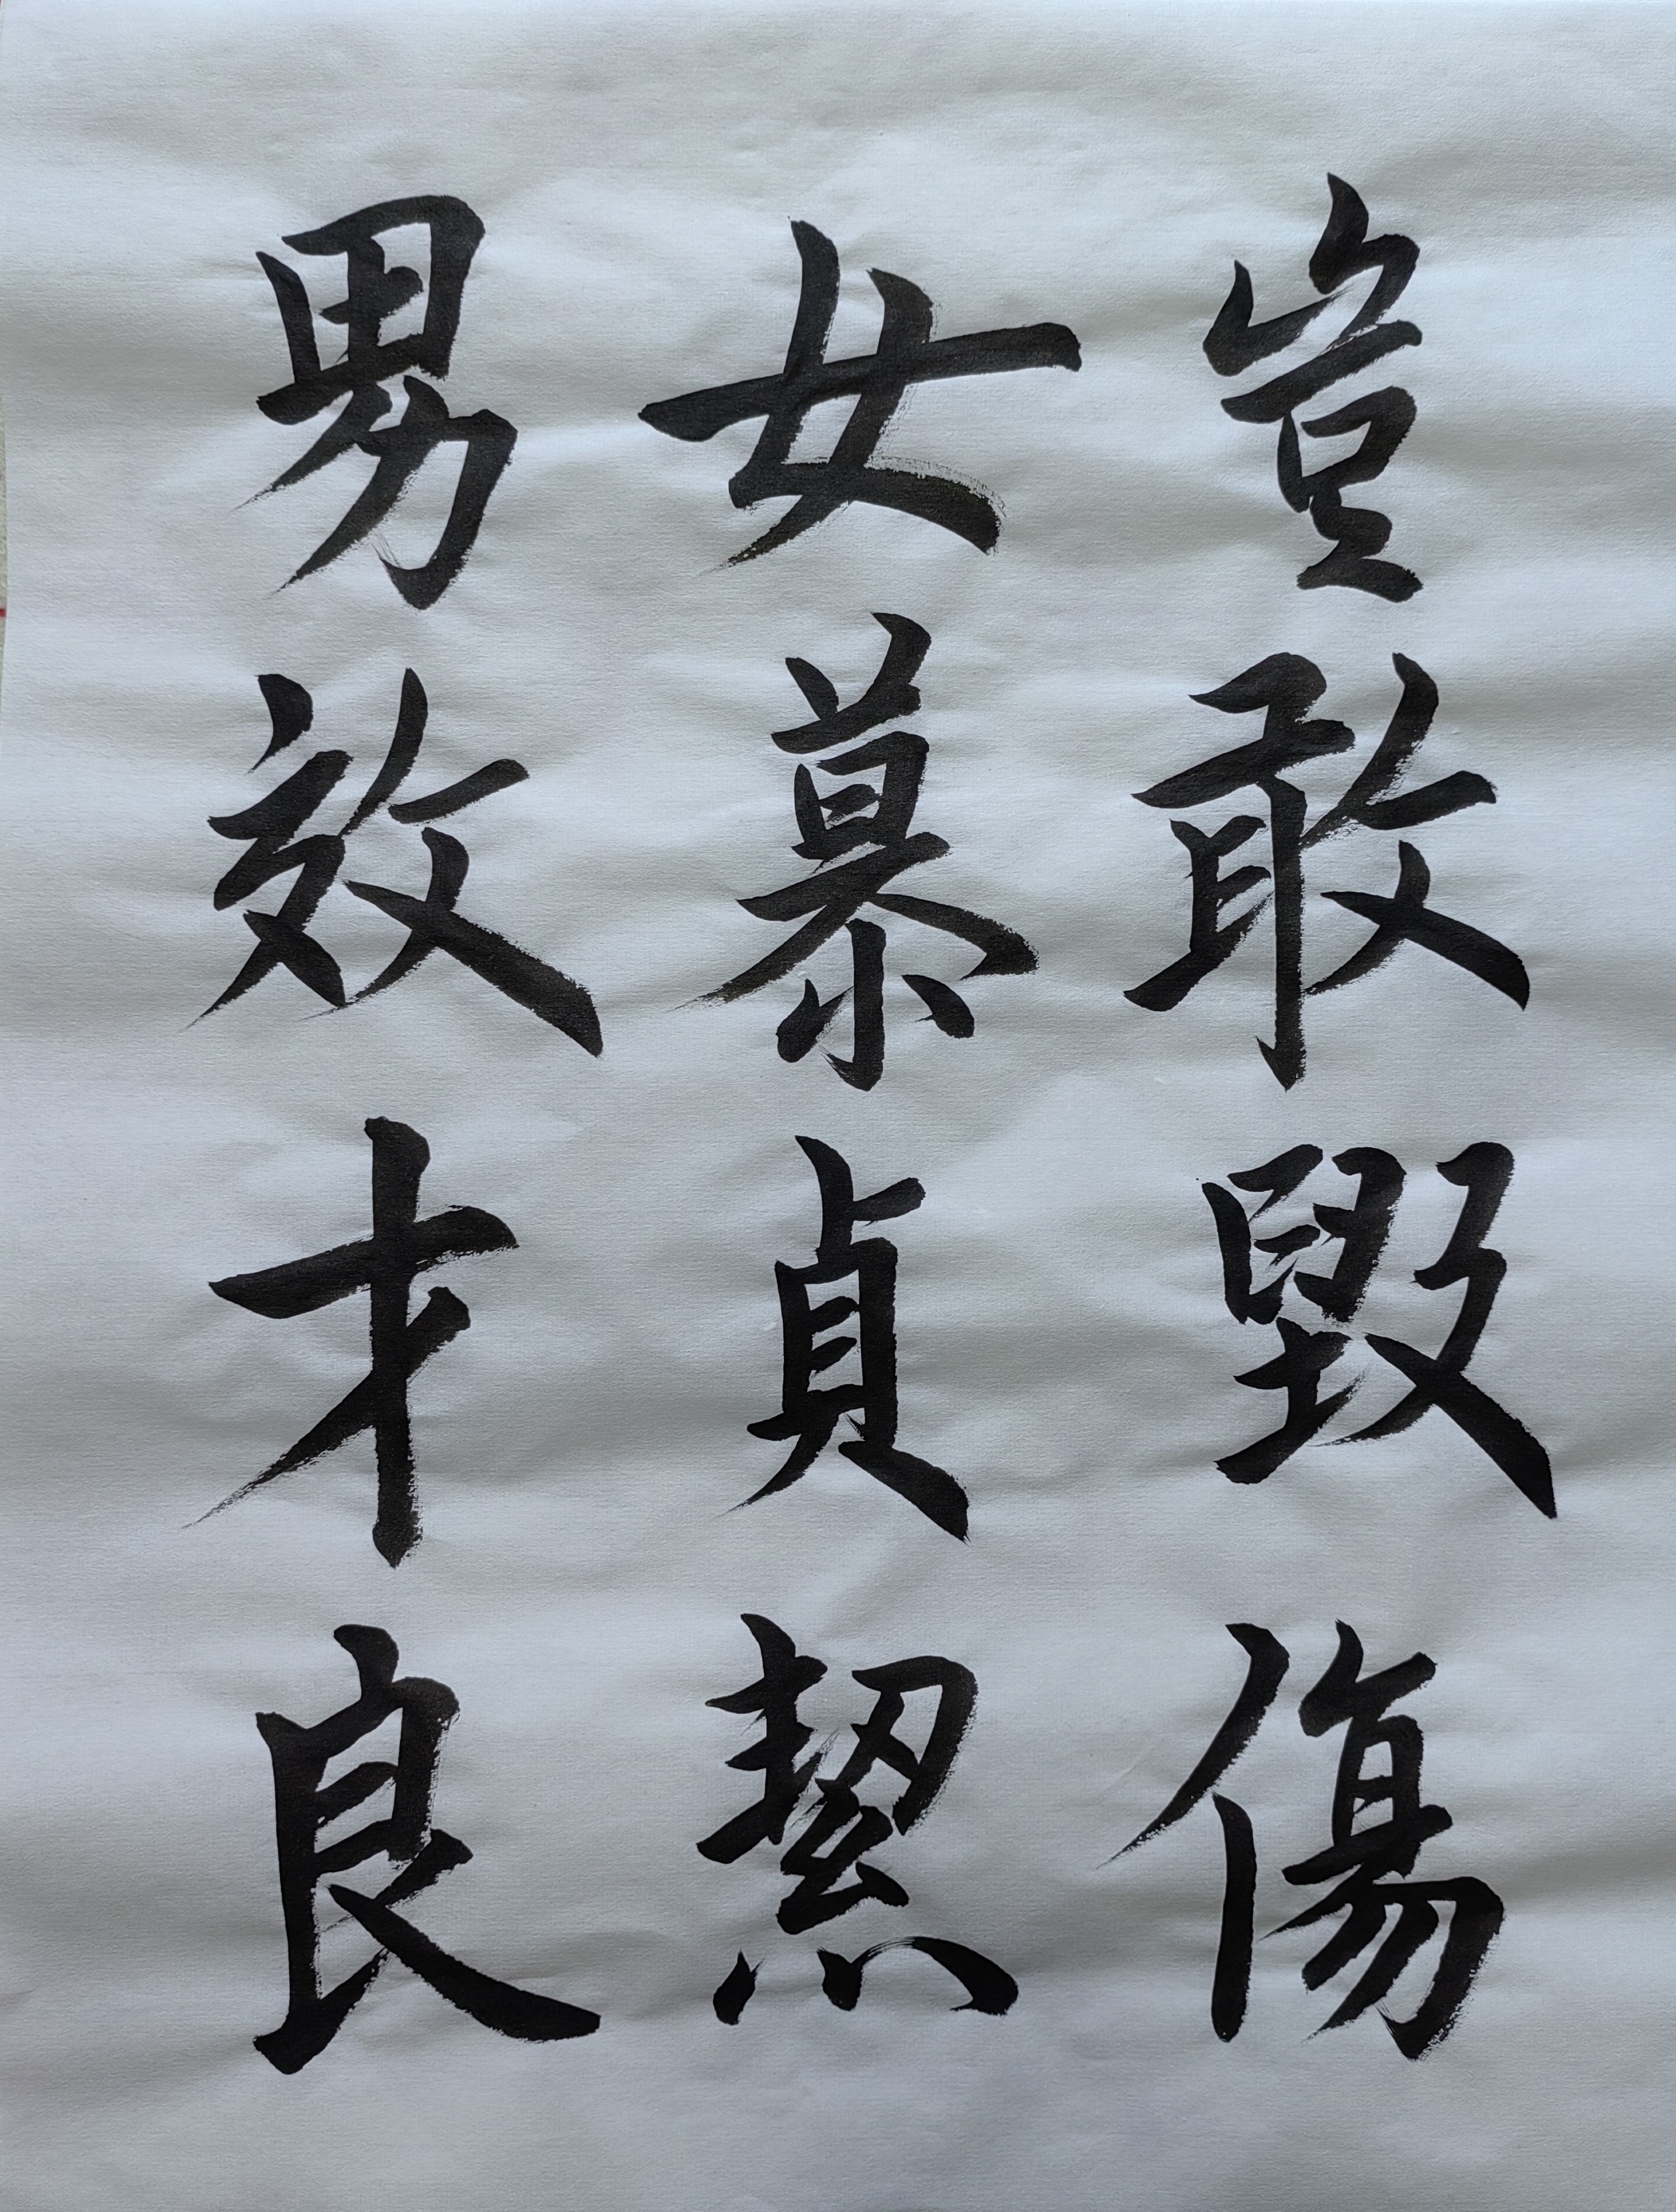 豈敢毀傷
女慕貞絜
男效才良